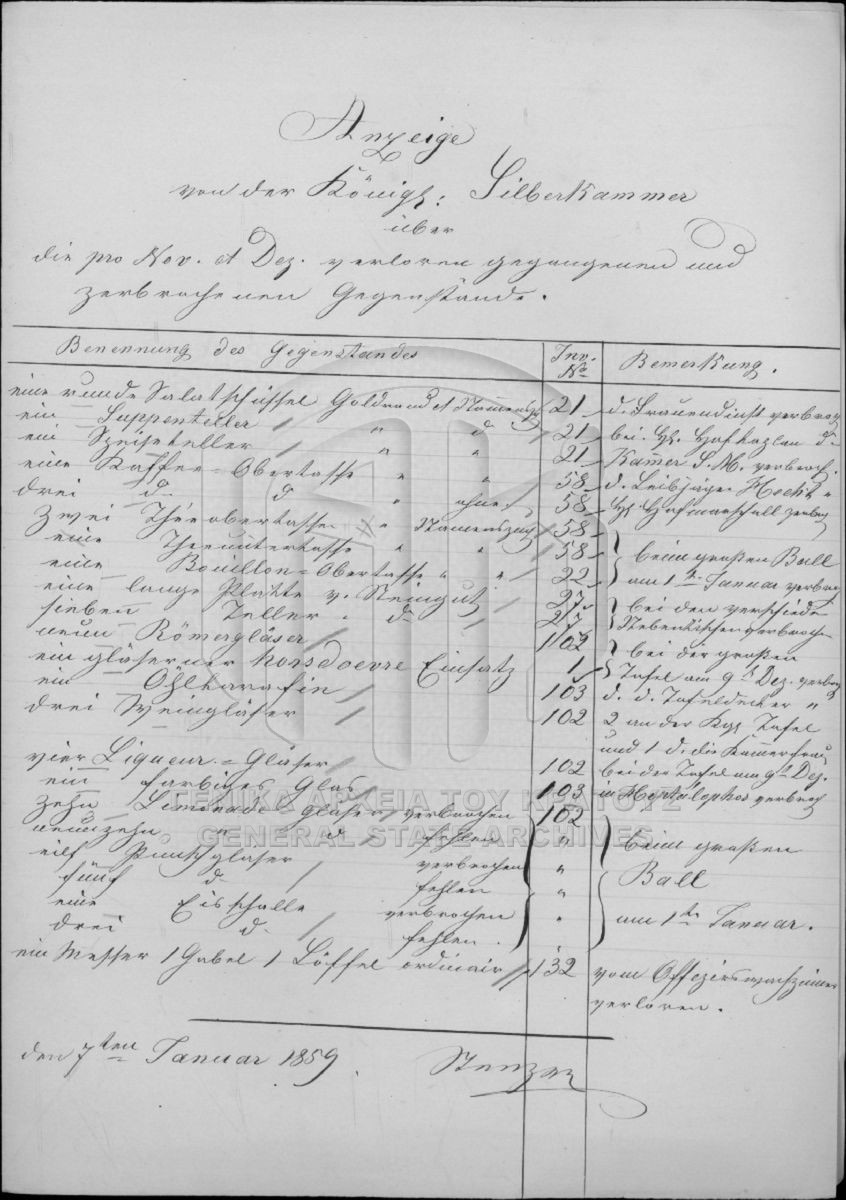 Anzeige
von der Königl: Silberkammer
über
die pro Nov. et Dez. verloren gegangenen und
zerbrochenen Gegenstände.
Benennung des Gegenstandes Inv. No Bemerkung.
eine runde Salatschüssel Goldrand et Namenszg 21 d. Frauendienst verbroch
ein Suppenteller " d 21 bei H. Hofkaplan d.
ein Speiseteller " " 21 Kammer S. M. verbroch.
eine Kaffee-Obertasse " " 58 d. Leibjäger "
drei d. d " ohne 58 H. Hofmarschall zerbroch
zwei Théeobertassen " Namenszug 58
eine Theeuntertasse " " 58 beim großen Ball
eine Bouillon-Obertasse " " 22 am 1ten Januar verbroch
eine lange Platte v. Steingut 27 bei den verschiede
sieben Teller " d 27 Nebentischen verbrochen
neun Römergläser 102 bei der großen
ein gläserner horsdoevre Einsatz 1 Tafel am 9t Dez. verbroch
ein Öhlkarafin 103 d. d. Tafeldecker "
drei Weingläser 102 2 an der Kgl Tafel
und 1 d. die Kammerfrau
vier Liqueur-Gläser 102 bei der Tafel am 9t Dez.
ein farbiges Glas 103 verbroch
zehn Limonade Gläser verbrochen 102
neunzehn " d fehlen " beim großen
eilf Punschgläser verbrochen " Ball
fünf d. fehlen "
eine Eisschalle verbrochen " am 1ten Januar.
drei d. fehlen.
ein Messer 1 Gabel 1 Löffel ordinair 132 vom Offizierswachzimmer
verloren.
den 7ten Januar 1859.
ΓΕΝΙΚΑ ΑΡΧΕΙΑ ΤΟΥ ΚΡΑΤΟΥΣ
GENERAL STATE ARCHIVES